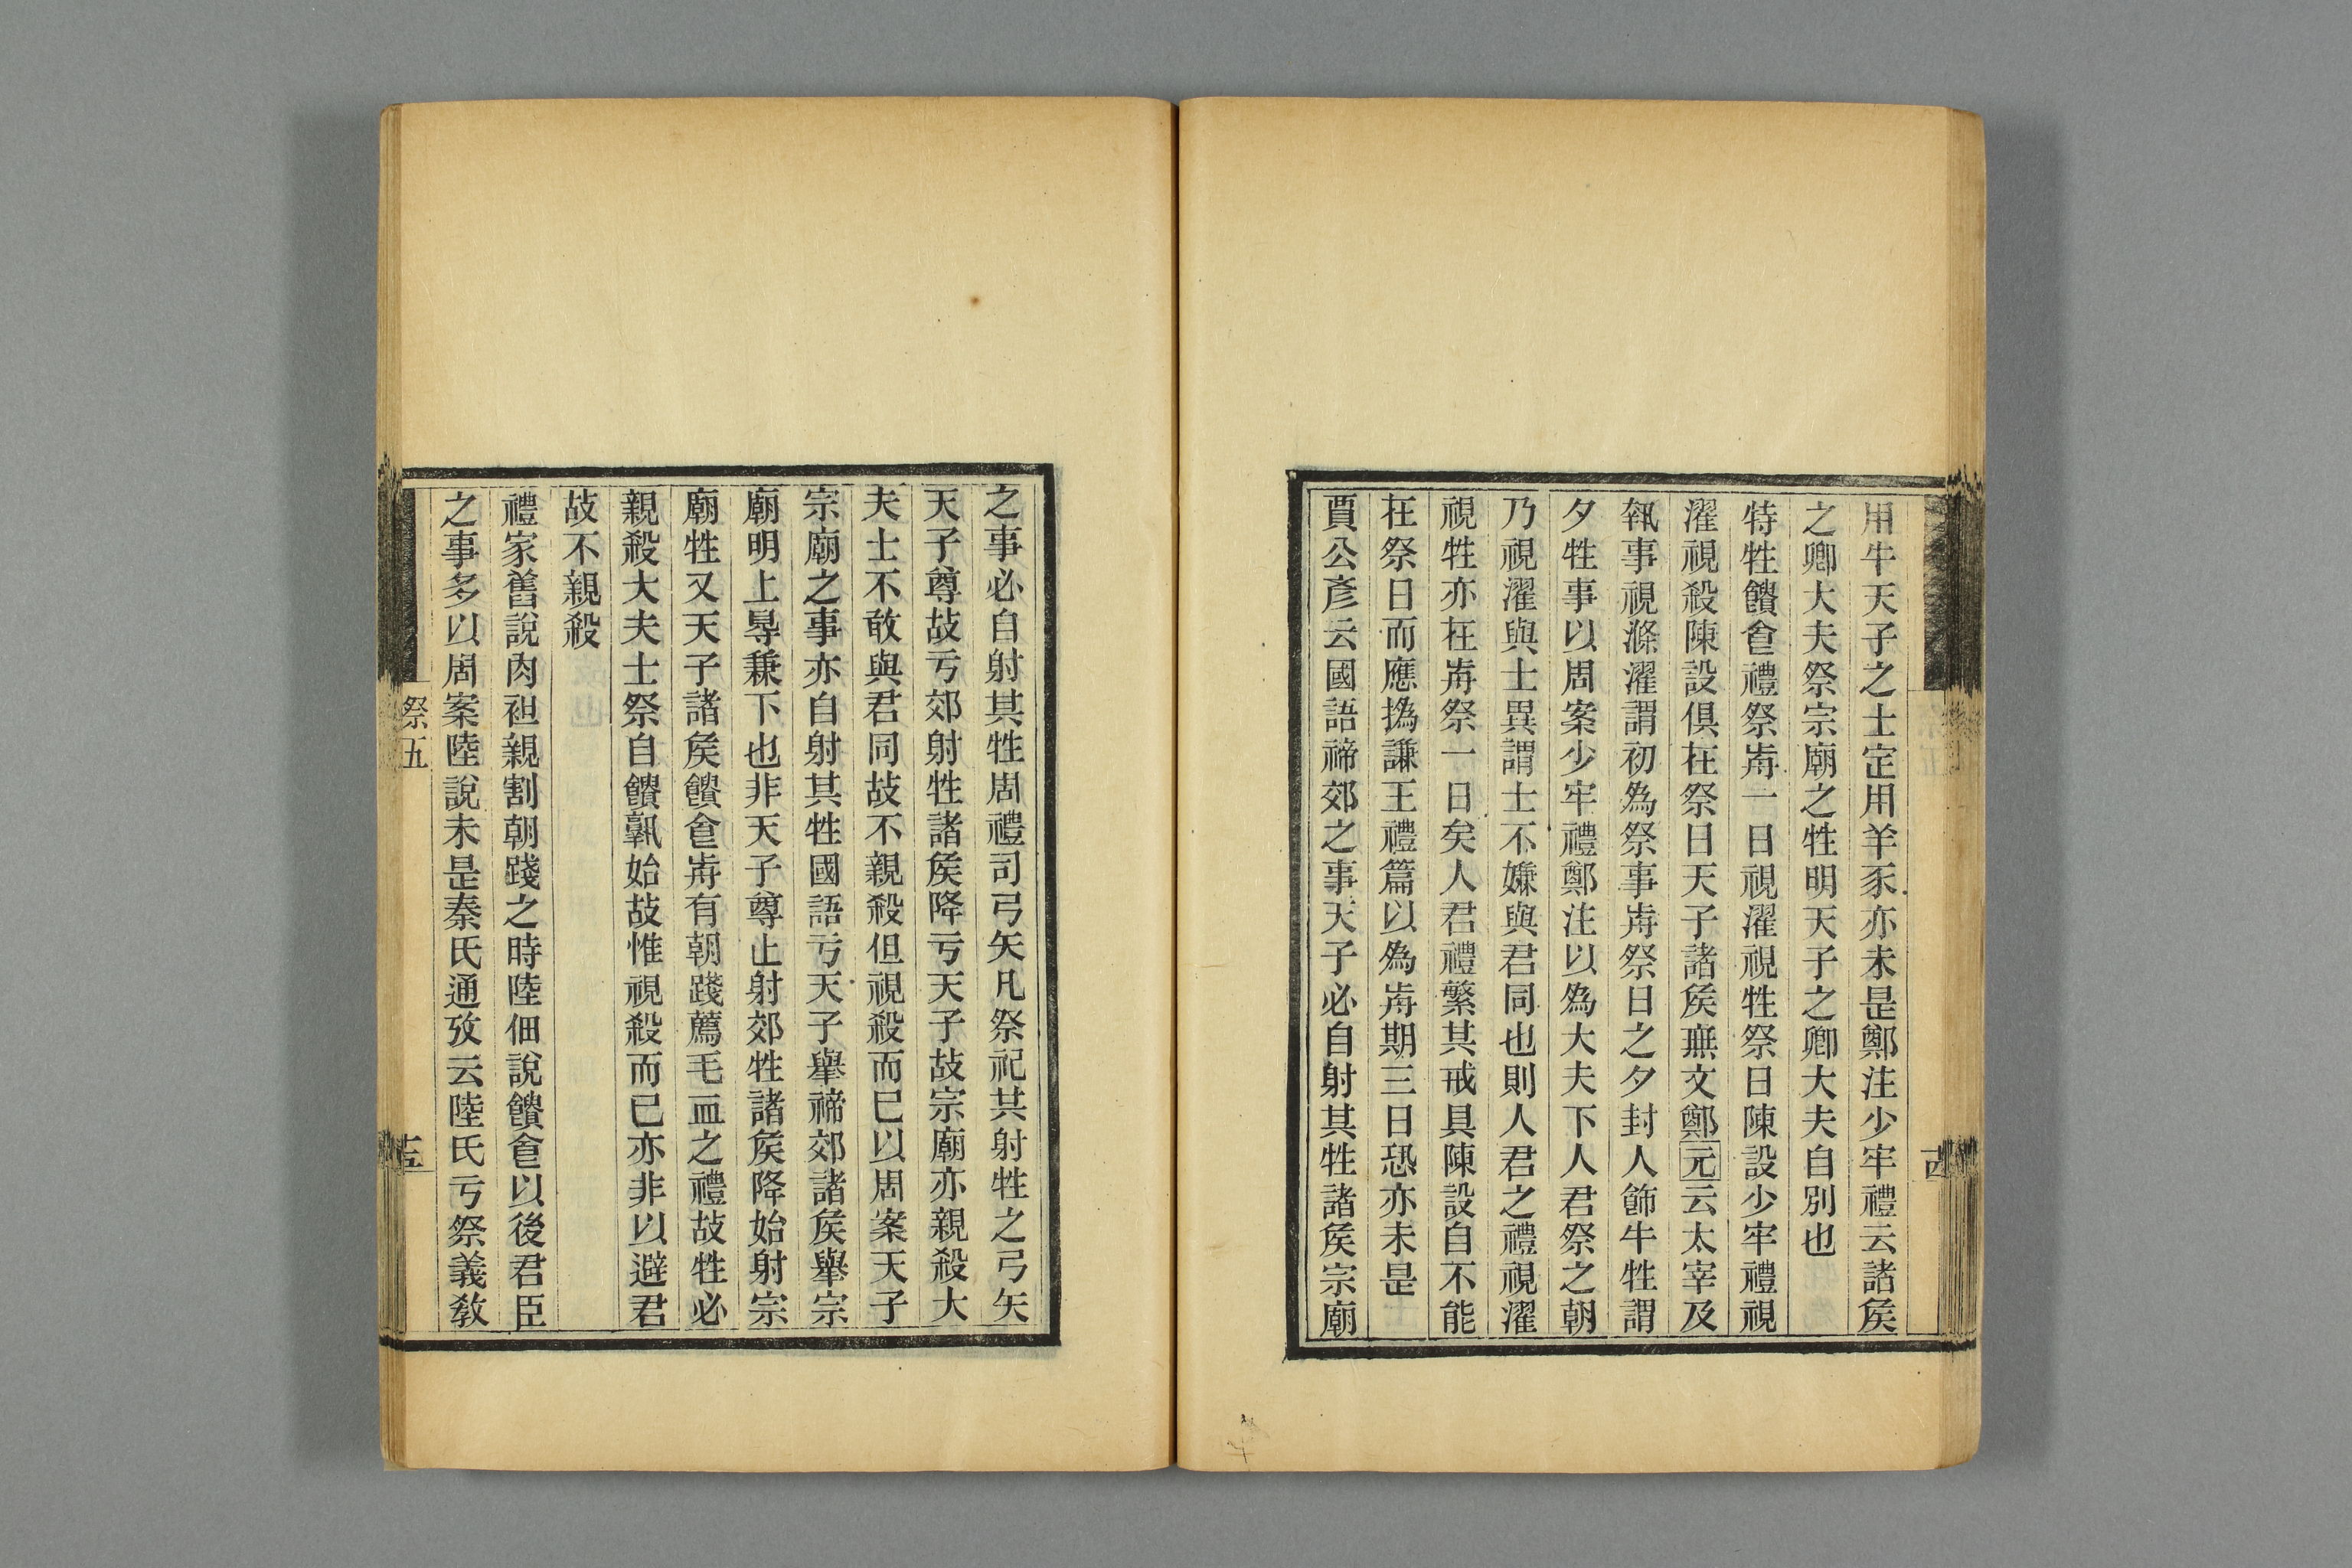 用牛天子之士定用羊豕亦未是鄭注少牢禮云諸矦
之卿大夫祭宗廟之牲明天子之卿大夫自別也
特牲饋𠊊禮祭歬一日視濯視牲祭日陳設少牢禮視
濯視殺陳設俱在祭日天子諸矦無文鄭元云太宰及
執事視滌濯謂初為祭事歬祭日之夕封人飾牛牲謂
夕牲事以周案少牢禮鄭注以為大夫下人君祭之朝
乃視濯與士異謂士不嫌與君同也則人君之禮視濯
視牲亦在歬祭一日矣人君禮繁其戒具陳設自不能
在祭日而應撝謙王禮篇以為歬期三日恐亦未是
賈公彥云國語禘郊之事天子必自射其牲諸矦宗廟
之事必自射其牲周禮司弓矢凡祭祀共射牲之弓矢
天子尊故亏郊射牲諸矦降亏天子故宗廟亦親殺大
夫士不敢與君同故不親殺但視殺而已以周案天子
宗廟之事亦自射其牲國語亏天子舉禘郊諸矦舉宗
廟明上㝵兼下也非天子尊止射郊牲諸矦降始射宗
廟牲又天子諸矦饋𠊊歬有朝踐薦毛血之禮故牲必
親殺大夫士祭自饋孰始故惟視殺而已亦非以避君
故不親殺
禮家舊說肉袒親割朝踐之時陸佃說饋𠊊以後君臣
之事多以周案陸說未是秦氏通攷云陸氏亏祭義敎
祭五
十五